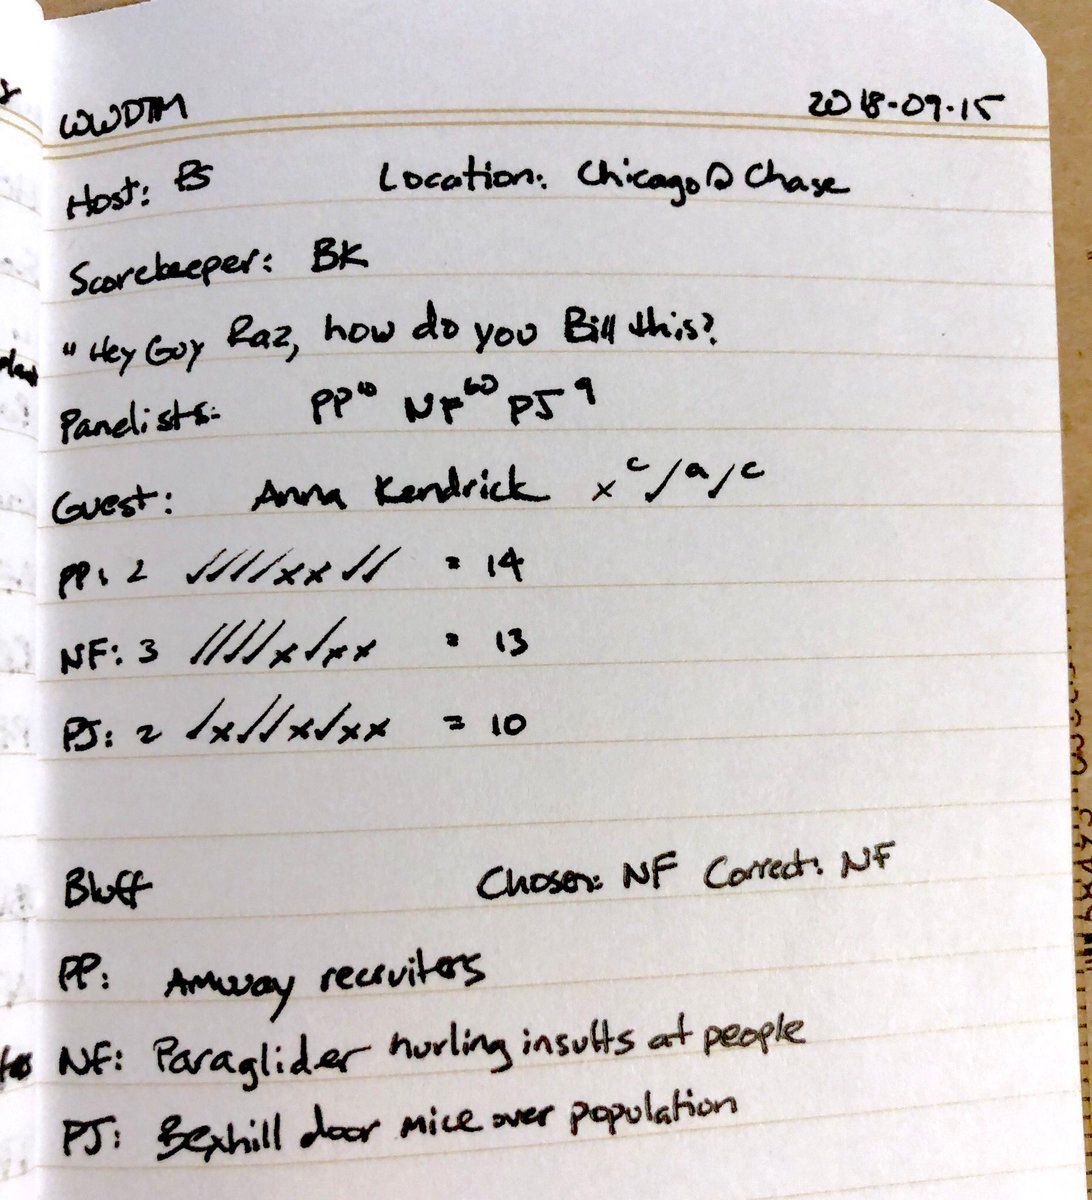 WWDTM 2018-09-15
Host: PS Location: Chicago @ Chase
Scorekeeper: BK
"Hey Guy Raz, how do you Bill this?
Panelists: PP¹⁰ NF⁶⁰ PJ⁹
Guest: Anna Kendrick x ᶜ/ᵃ/ᶜ
PP: 2 ////xx// = 14
NF: 3 ////x/xx = 13
PJ: 2 /x//x/xx = 10
Bluff Chosen: NF Correct: NF
PP: Amway recruiters
NF: Paraglider hurling insults at people
PJ: Bexhill door mice over population